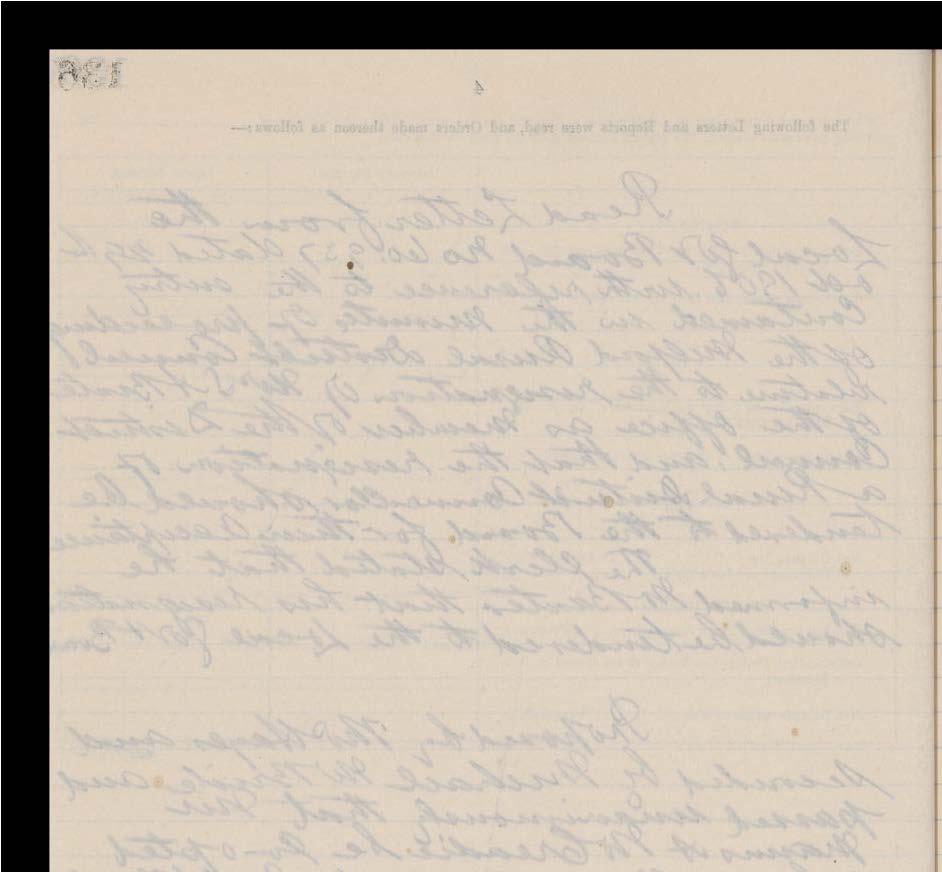 136
4
The following Letters and Reports were read, and Orders made thereon as follows:—
Read Letter from the
Local Govt Board No 60.937 dated 29th
Oct 1906 with reference to the entry
Contained in the minutes of proceedings
of the Milford Rural District Council
relative to the resignation of Mr S A
of the office as Member of the District
Council, and that the resignation of
a Rural District Councillor should be
tendered to the Board for their acceptance
The Clerk stated that he
informed Mr that his resignation
should be tendered to the Local Govt
Proposed by Thos Hayes and
seconded by Michael McBride and
passed unanimously that
McCreadie be Co-opted